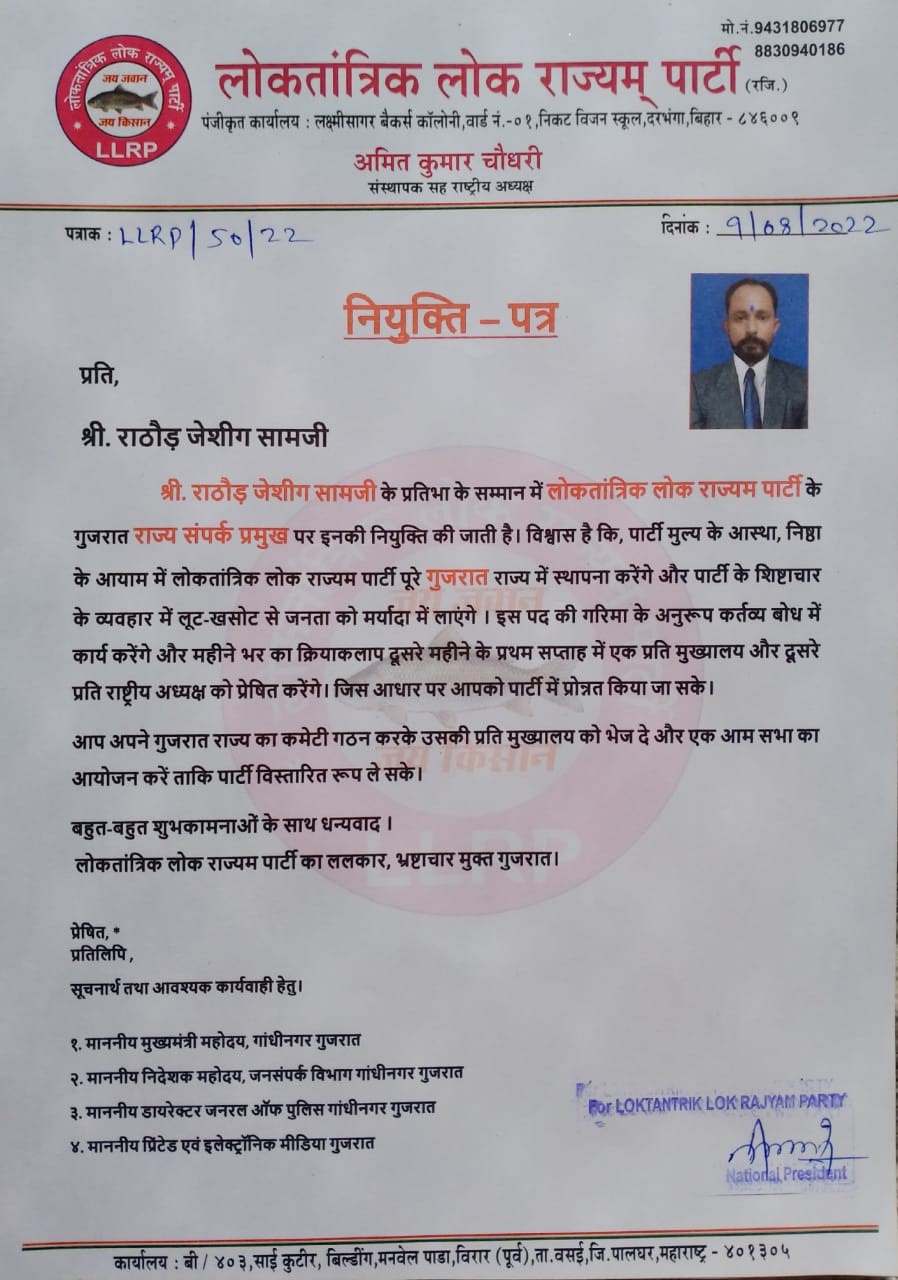 मो.नं.9431806977
8830940186
लोकतांत्रिक लोक राज्यम् पार्टी
जय जवान
जय किसान
LLRP
लोकतांत्रिक लोक राज्यम् पार्टी (रजि.)
पंजीकृत कार्यालय : लक्ष्मीसागर बैकर्स कॉलोनी,वार्ड नं.-०१,निकट विजन स्कूल,दरभंगा,बिहार - ८४६००९
अमित कुमार चौधरी
संस्थापक सह राष्ट्रीय अध्यक्ष
पत्राक : LLRP/50/22
दिनांक : 9/08/2022
नियुक्ति – पत्र
प्रति,
श्री. राठौड़ जेशीग सामजी
श्री. राठौड़ जेशीग सामजी के प्रतिभा के सम्मान में लोकतांत्रिक लोक राज्यम पार्टी के
गुजरात राज्य संपर्क प्रमुख पर इनकी नियुक्ति की जाती है। विश्वास है कि, पार्टी मुल्य के आस्था, निष्ठा
के आयाम में लोकतांत्रिक लोक राज्यम पार्टी पूरे गुजरात राज्य में स्थापना करेंगे और पार्टी के शिष्टाचार
के व्यवहार में लूट-खसोट से जनता को मर्यादा में लाएंगे । इस पद की गरिमा के अनुरूप कर्तव्य बोध में
कार्य करेंगे और महीने भर का क्रियाकलाप दूसरे महीने के प्रथम सप्ताह में एक प्रति मुख्यालय और दूसरे
प्रति राष्ट्रीय अध्यक्ष को प्रेषित करेंगे। जिस आधार पर आपको पार्टी में प्रोन्नत किया जा सके।
आप अपने गुजरात राज्य का कमेटी गठन करके उसकी प्रति मुख्यालय को भेज दे और एक आम सभा का
आयोजन करें ताकि पार्टी विस्तारित रूप ले सके।
बहुत-बहुत शुभकामनाओं के साथ धन्यवाद ।
लोकतांत्रिक लोक राज्यम पार्टी का ललकार, भ्रष्टाचार मुक्त गुजरात।
जय किसान
LLRP
प्रेषित, *
प्रतिलिपि ,
सूचनार्थ तथा आवश्यक कार्यवाही हेतु।
१. माननीय मुख्यमंत्री महोदय, गांधीनगर गुजरात
२. माननीय निदेशक महोदय, जनसंपर्क विभाग गांधीनगर गुजरात
३. माननीय डायरेक्टर जनरल ऑफ पुलिस गांधीनगर गुजरात
४. माननीय प्रिंटेड एवं इलेक्ट्रॉनिक मीडिया गुजरात
For LOKTANTRIK LOK RAJYAM PARTY
National President
कार्यालय : बी / ४०३,साई कुटीर, बिल्डींग,मनवेल पाडा,विरार (पूर्व),ता.वसई,जि.पालघर,महाराष्ट्र - ४०१३०५